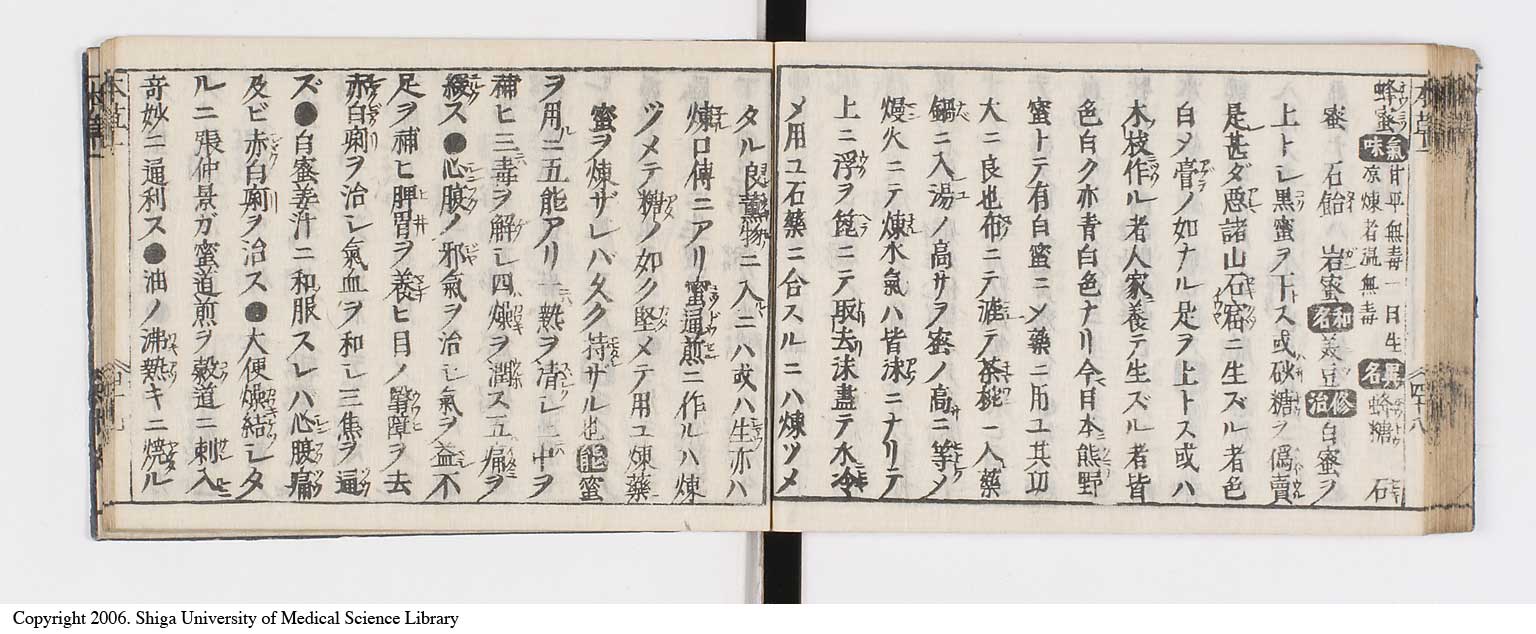 蜂蜜 氣味 甘平無毒一日生凉煉者温無毒 異名 蜂糖 石
蜜 石飴 岩蜜 和名 美豆 修治 白蜜ヲ
上トシ黒蜜ヲ下トス或砂糖ヲ偽賣
是甚ダ悪諸山石窟ニ生ズル者色
白メ膏ノ如ナル是ヲ上トス或ハ
木枝作ル者人家養テ生ズル者皆
色白ク亦青白色ナリ今日本熊野
蜜トテ有白蜜ニメ藥ニ用ユ其功
大ニ良也布ニテ漉テ茶椀一入藥
鍋ニ入湯ノ高サヲ蜜ノ高ニ等メ
熳火ニテ煉水氣ハ皆沫ニナリテ
上ニ浮ヲ箆ニテ取去沫盡テ水冷
メ用ユ石藥ニ合スルニハ煉ツメ
タル良薫物ニ入ニハ或ハ生亦ハ
煉口傳ニアリ蜜通煎ニ作ルハ煉
ツメテ糖ノ如ク堅メテ用ユ煉藥
蜜ヲ煉ザレバ久ク持ザル也 能 蜜
ヲ用ルニ五能アリ一熱ヲ清シ二中ヲ
補ヒ三毒ヲ解シ四燥ヲ潤ス五痛ヲ
緩ス●心腹ノ邪氣ヲ治シ氣ヲ益不
足ヲ補ヒ脾胃ヲ養ヒ目ノ翳障ヲ去
赤白痢ヲ治シ氣血ヲ和シ三焦ヲ通
ズ●白蜜姜汁ニ和服スレハ心腹痛
及ビ赤白痢ヲ治ス●大便燥結シタ
ルニ張仲景ガ蜜道煎ヲ穀道ニ刺入
奇妙ニ通利ス●油ノ沸熱キニ焼ル
Copyright 2006. Shiga University of Medical Science Library